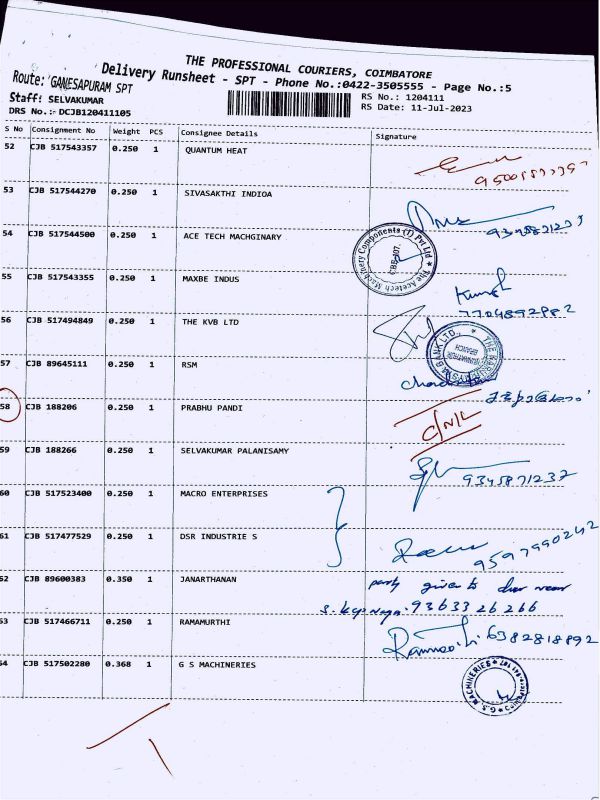 THE PROFESSIONAL COURIERS, COIMBATORE
Delivery Runsheet - SPT - Phone No.:0422-3505555 - Page No.:5
Route: GANESAPURAM SPT
Staff: SELVAKUMAR
DRS No.:- DCJB120411105
RS No.: 1204111
RS Date: 11-Jul-2023
S No Consignment No Weight PCS Consignee Details Signature
52 CJB 517543357 0.250 1 QUANTUM HEAT
53 CJB 517544270 0.250 1 SIVASAKTHI INDIOA
54 CJB 517544500 0.250 1 ACE TECH MACHGINARY
The Acetech Machinery Components (I) Pvt Ltd
55 CJB 517543355 0.250 1 MAXBE INDUS
7704892982
56 CJB 517494849 0.250 1 THE KVB LTD
57 CJB 89645111 0.250 1 RSM
58 CJB 188206 0.250 1 PRABHU PANDI
D/N/L
59 CJB 188266 0.250 1 SELVAKUMAR PALANISAMY
9345871237
60 CJB 517523400 0.250 1 MACRO ENTERPRISES
61 CJB 517477529 0.250 1 DSR INDUSTRIE S
9597990242
62 CJB 89600383 0.350 1 JANARTHANAN
9363326266
53 CJB 517466711 0.250 1 RAMAMURTHI
6382818892
54 CJB 517502280 0.368 1 G S MACHINERIES
G.S. MACHINERIES